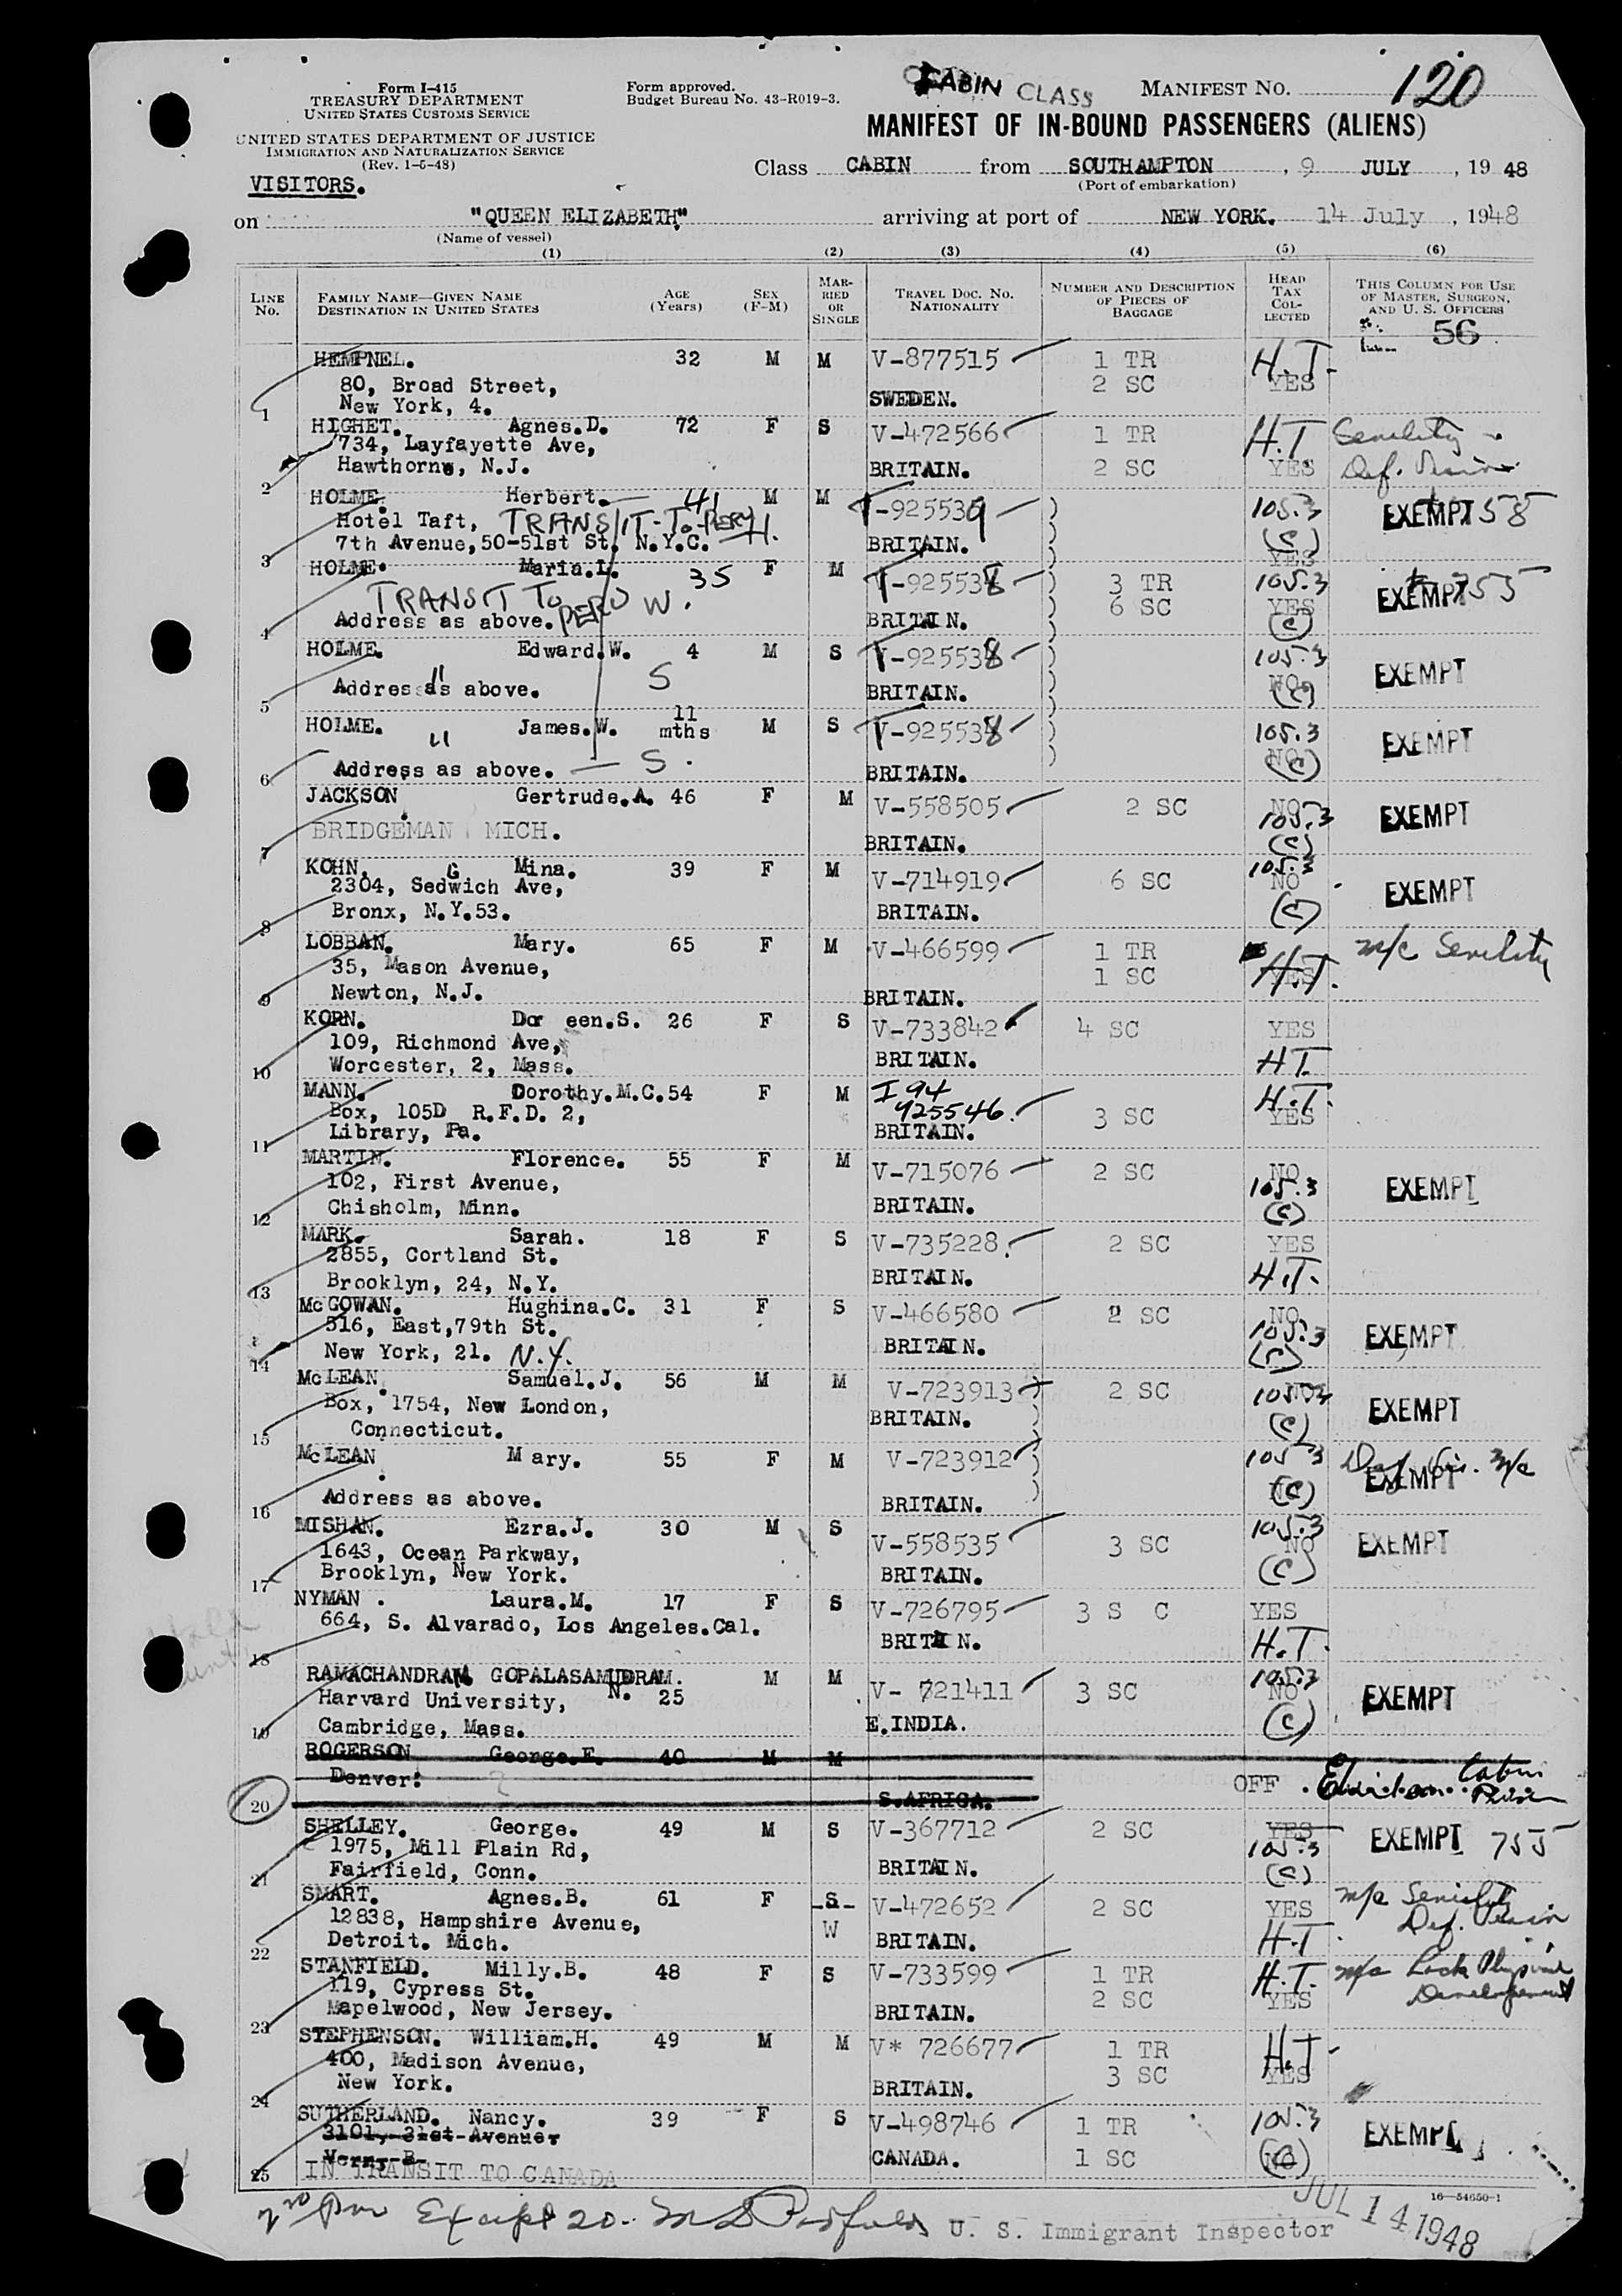 Form I-415
TREASURY DEPARTMENT
UNITED STATES CUSTOMS SERVICE
UNITED STATES DEPARTMENT OF JUSTICE
IMMIGRATION AND NATURALIZATION SERVICE
(Rev. 1-5-48)
VISITORS.
Form approved.
Budget Bureau No. 43-R019-3.
CABIN CLASS
MANIFEST NO. 120
MANIFEST OF IN-BOUND PASSENGERS (ALIENS)
Class CABIN from SOUTHAMPTON, 9 JULY, 1948
(Port of embarkation)
on "QUEEN ELIZABETH" arriving at port of NEW YORK. 14 July, 1948
(Name of vessel)
(1) (2) (3) (4) (5) (6)
LINE NO. FAMILY NAME—GIVEN NAME DESTINATION IN UNITED STATES AGE (Years) SEX (F-M) MARRIED OR SINGLE TRAVEL DOC. NO. NATIONALITY NUMBER AND DESCRIPTION OF PIECES OF BAGGAGE HEAD TAX COLLECTED THIS COLUMN FOR USE OF MASTER, SURGEON, AND U. S. OFFICERS
56
HEMPNEL. 32 M M V-877515 1 TR H.T.
80, Broad Street, 2 SC YES
New York, 4. SWEDEN.
1
HIGHET. Agnes.D. 72 F S V-472566 1 TR H.T Senility
734, Layfayette Ave,
Hawthorne, N.J. BRITAIN. 2 SC YES Def. Vision
2
HOLME. Herbert. 41 M M T-925539 105.3 EXEMPT 758
Hotel Taft, TRANSIT-TO-PERU H. (C)
7th Avenue,50-51st St. N.Y.C. BRITAIN. YES
3
HOLME. Maria.L. 35 F M T-925538 3 TR 105.3 EXEMPT 755
TRANSIT TO PERU W. 6 SC YES
Address as above. BRITAIN. (C)
4
HOLME. Edward.W. 4 M S T-925538 105.3 EXEMPT
Address as above. " S BRITAIN. NO (C)
5
HOLME. James.W. 11 mths M S T-925538 105.3 EXEMPT
" NO (C)
Address as above. S. BRITAIN.
6
JACKSON Gertrude.A. 46 F M V-558505 2 SC NO EXEMPT
BRIDGEMAN MICH. 105.3
BRITAIN. (C)
7
KOHN. G Mina. 39 F M V-714919 6 SC 105.3 EXEMPT
2304, Sedwich Ave, NO
Bronx, N.Y.53. BRITAIN. (C)
8
LOBBAN. Mary. 65 F M V-466599 1 TR m/c Senility
35, Mason Avenue, 1 SC YES H.T.
Newton, N.J. BRITAIN.
9
KORN. Dor een.S. 26 F S V-733842 4 SC YES
109, Richmond Ave,
Worcester, 2, Mass. BRITAIN. H.T.
10
MANN. Dorothy.M.C. 54 F M I 94 H.T.
Box, 105D R.F.D. 2, 925546. 3 SC YES
Library, Pa. BRITAIN.
11
MARTIN. Florence. 55 F M V-715076 2 SC NO EXEMPT
102, First Avenue, 105.3
Chisholm, Minn. BRITAIN. (C)
12
MARK. Sarah. 18 F S V-735228. 2 SC YES
2855, Cortland St.
Brooklyn, 24, N.Y. BRITAIN. H.T.
13
McGOWAN. Hughina.C. 31 F S V-466580 2 SC NO
516, East,79th St. 105.3 EXEMPT
New York, 21. N.Y. BRITAIN. (C)
14
McLEAN. Samuel.J. 56 M M V-723913 2 SC NO 105.3
Box, 1754, New London, BRITAIN. (C) EXEMPT
Connecticut.
15
McLEAN Mary. 55 F M V-723912 105.3 Def. Vis. m/c
EXEMPT
Address as above. BRITAIN. (C)
16
MISHAN. Ezra.J. 30 M S V-558535 3 SC 105.3 EXEMPT
1643, Ocean Parkway, NO
Brooklyn, New York. BRITAIN. (C)
17
NYMAN. Laura.M. 17 F S V-726795 3 S C YES
664, S. Alvarado, Los Angeles.Cal. BRITAIN. H.T.
18
RAMACHANDRAM. GOPALASAMUDRAM. M M 105.3
Harvard University, N. 25 V- 721411 3 SC NO EXEMPT
Cambridge, Mass. E.INDIA. (C)
19
ROGERSON George.F. 40 M M
Denver. OFF Cabin
20 S.AFRICA.
SHELLEY. George. 49 M S V-367712 2 SC YES EXEMPT 755
1975, Mill Plain Rd, 105.3
Fairfield, Conn. BRITAIN. (C)
21
SMART. Agnes.B. 61 F -S- V-472652 2 SC YES m/c Senility
12838, Hampshire Avenue, W Def. Vision
Detroit. Mich. BRITAIN. H.T.
22
STANFIELD. Milly.B. 48 F S V-733599 1 TR H.T. m/c Lack Physical
119, Cypress St. 2 SC YES Development
Mapelwood, New Jersey. BRITAIN.
23
STEPHENSON. William.H. 49 M M V* 726677 1 TR H.T.
400, Madison Avenue, 3 SC YES
New York. BRITAIN.
24
SUTHERLAND. Nancy. 39 F S V-498746 1 TR 105.3 EXEMPT
3101, 31st Avenue,
CANADA. 1 SC NO
25 IN TRANSIT TO CANADA
Except 20. U. S. Immigrant Inspector
16—54650-1
JUL 14 1948